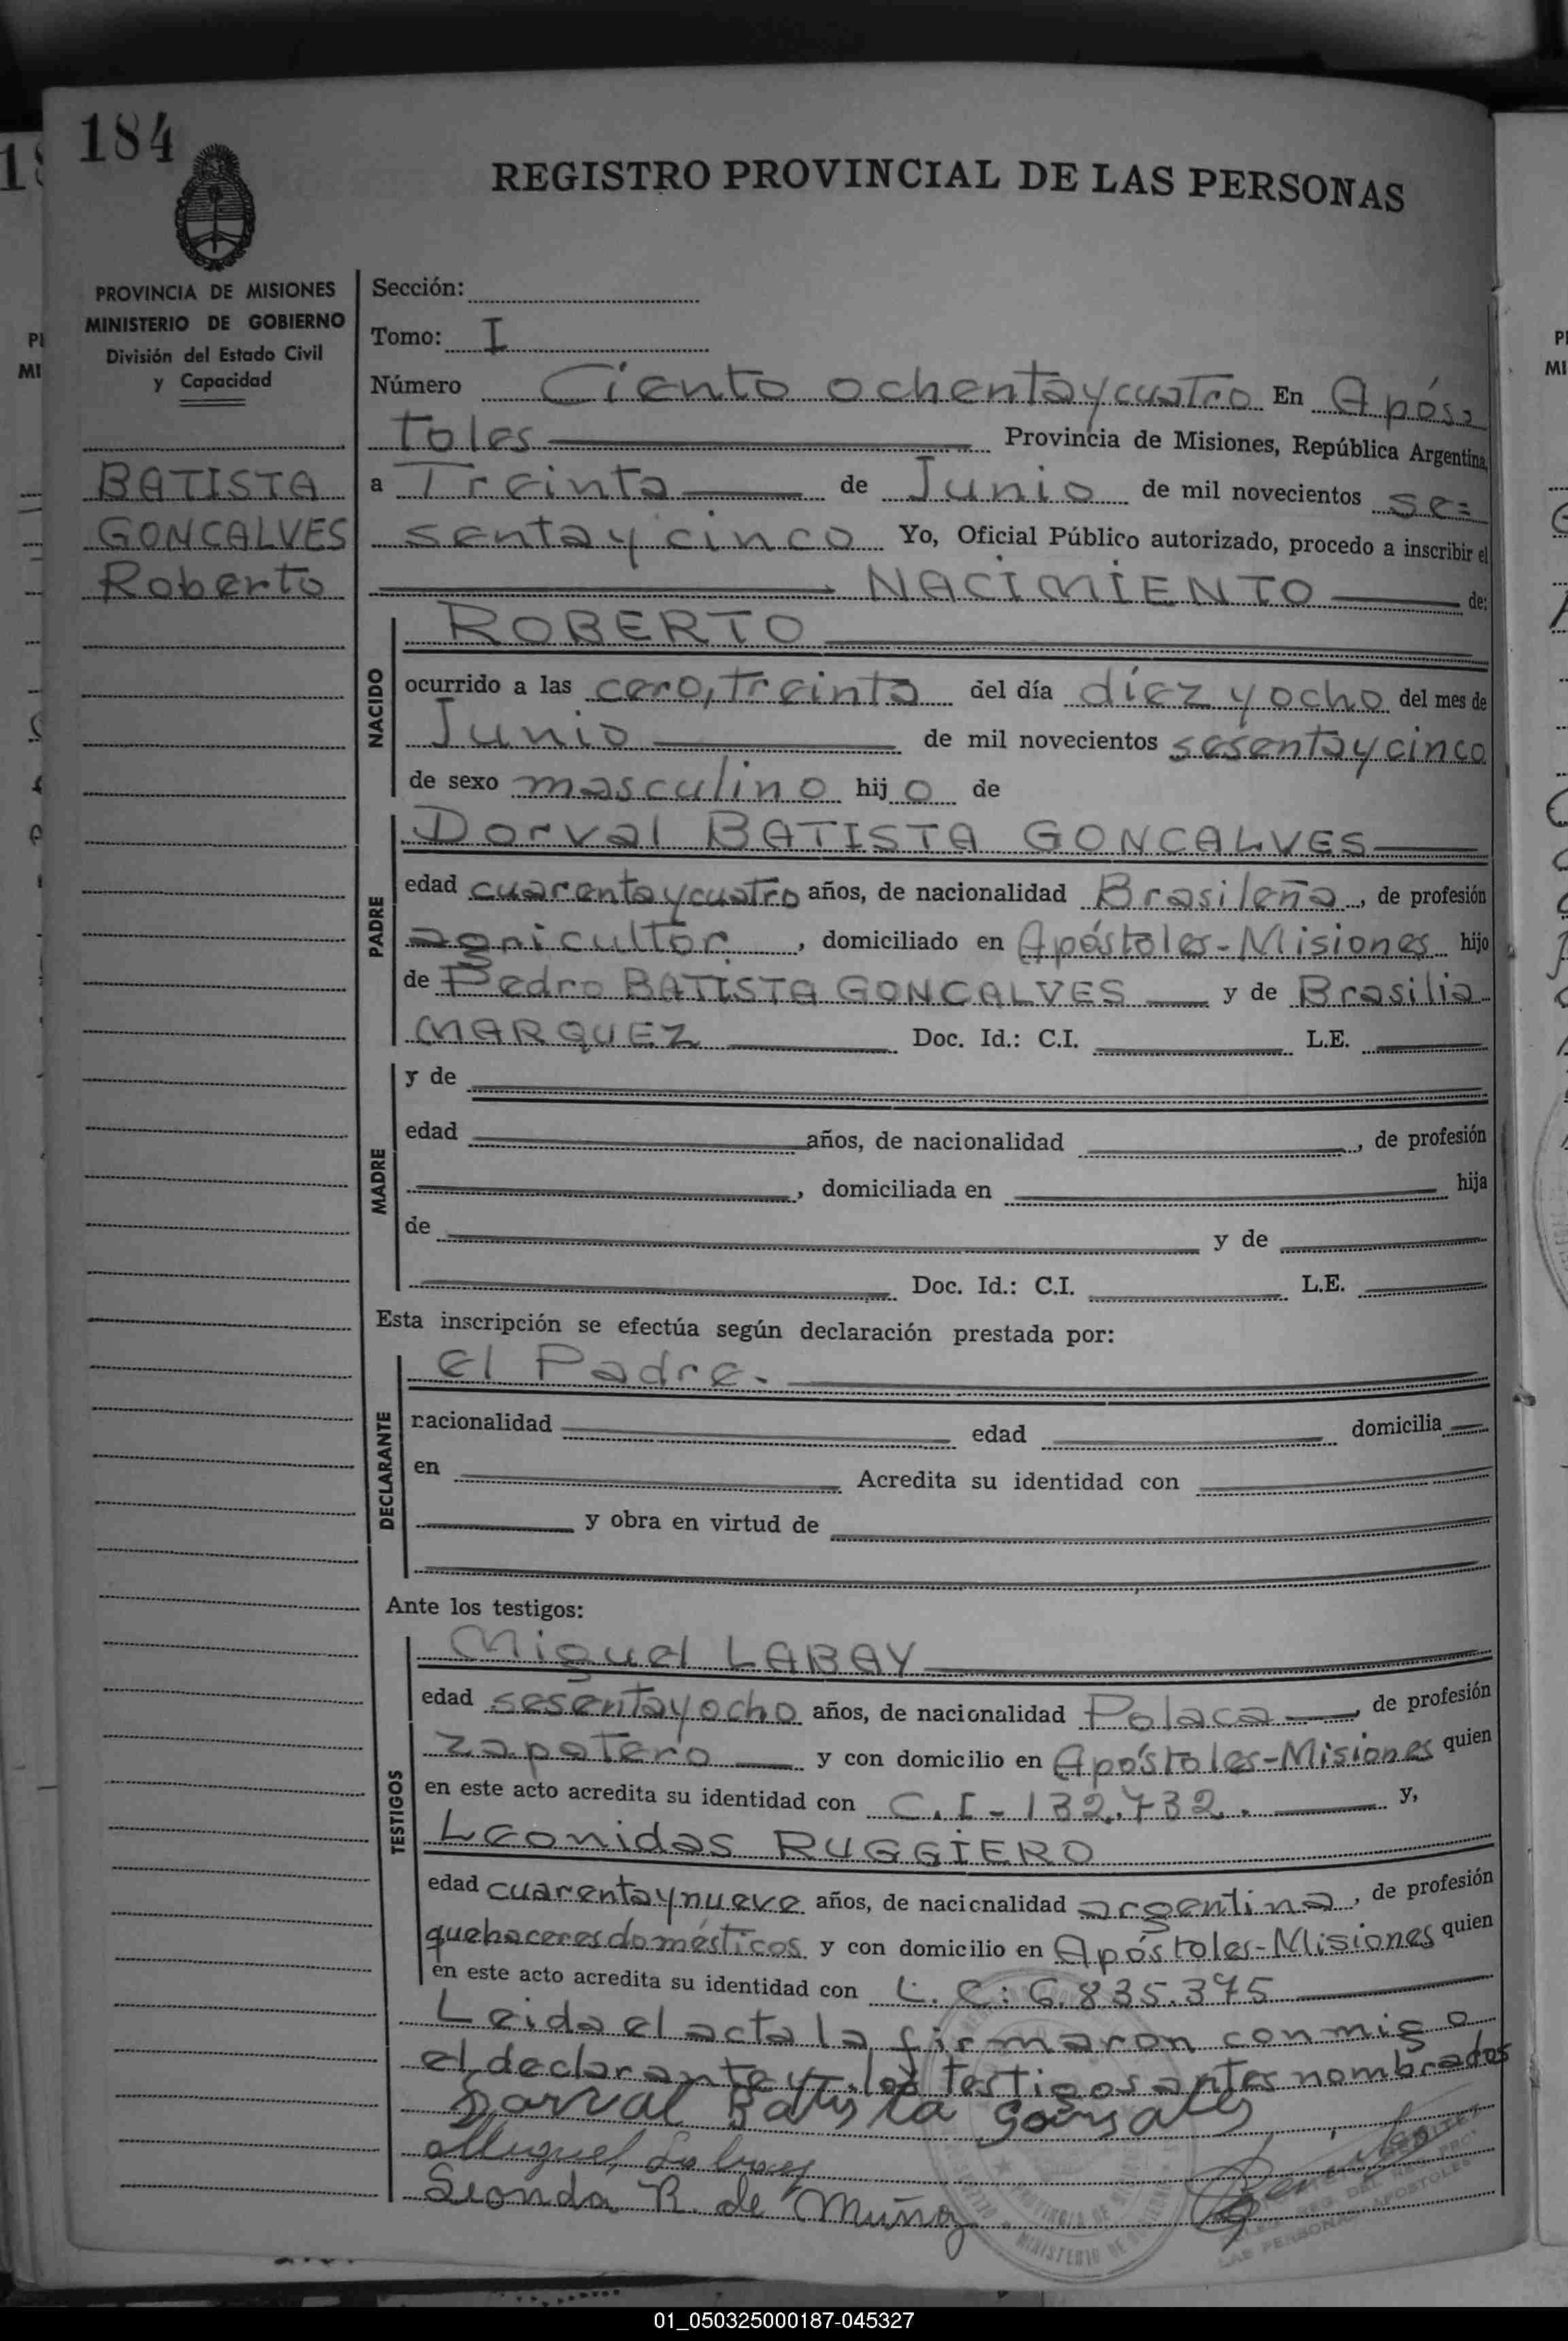 184
REGISTRO PROVINCIAL DE LAS PERSONAS
PROVINCIA DE MISIONES
MINISTERIO DE GOBIERNO
División del Estado Civil
y Capacidad
BATISTA
GONCALVES
Roberto
Sección:
Tomo: I
Número Ciento ochenta y cuatro En Após=
toles Provincia de Misiones, República Argentina,
a Treinta de Junio de mil novecientos se=
senta y cinco Yo, Oficial Público autorizado, procedo a inscribir el
NACIMIENTO de:
NACIDO
ROBERTO
ocurrido a las cero, treinta del día diez y ocho del mes de
Junio de mil novecientos sesenta y cinco
de sexo masculino hijo de
PADRE
Dorval BATISTA GONCALVES
edad cuarenta y cuatro años, de nacionalidad Brasileña, de profesión
agricultor, domiciliado en Apóstoles-Misiones hijo
de Pedro BATISTA GONCALVES y de Brasilia
MARQUEZ Doc. Id.: C.I. L.E.
MADRE
y de
edad años, de nacionalidad , de profesión
, domiciliada en hija
de y de
Doc. Id.: C.I. L.E.
Esta inscripción se efectúa según declaración prestada por:
DECLARANTE
el Padre.
racionalidad edad domicilia
en Acredita su identidad con
y obra en virtud de
Ante los testigos:
TESTIGOS
Miguel LABAY
edad sesenta y ocho años, de nacionalidad Polaca, de profesión
zapatero y con domicilio en Apóstoles-Misiones quien
en este acto acredita su identidad con C.I-132.732. y,
Leonidas RUGGIERO
edad cuarenta y nueve años, de nacionalidad argentina, de profesión
quehaceres domésticos y con domicilio en Apóstoles-Misiones quien
en este acto acredita su identidad con L.C: 6.835.375
Leida el acta la firmaron conmigo
el declarante y los testigos antes nombrados
Dorval Batista
Miguel Labay
R. de Muñoz
MINISTERIO DE
PROVINCIA DE
01_050325000187-045327